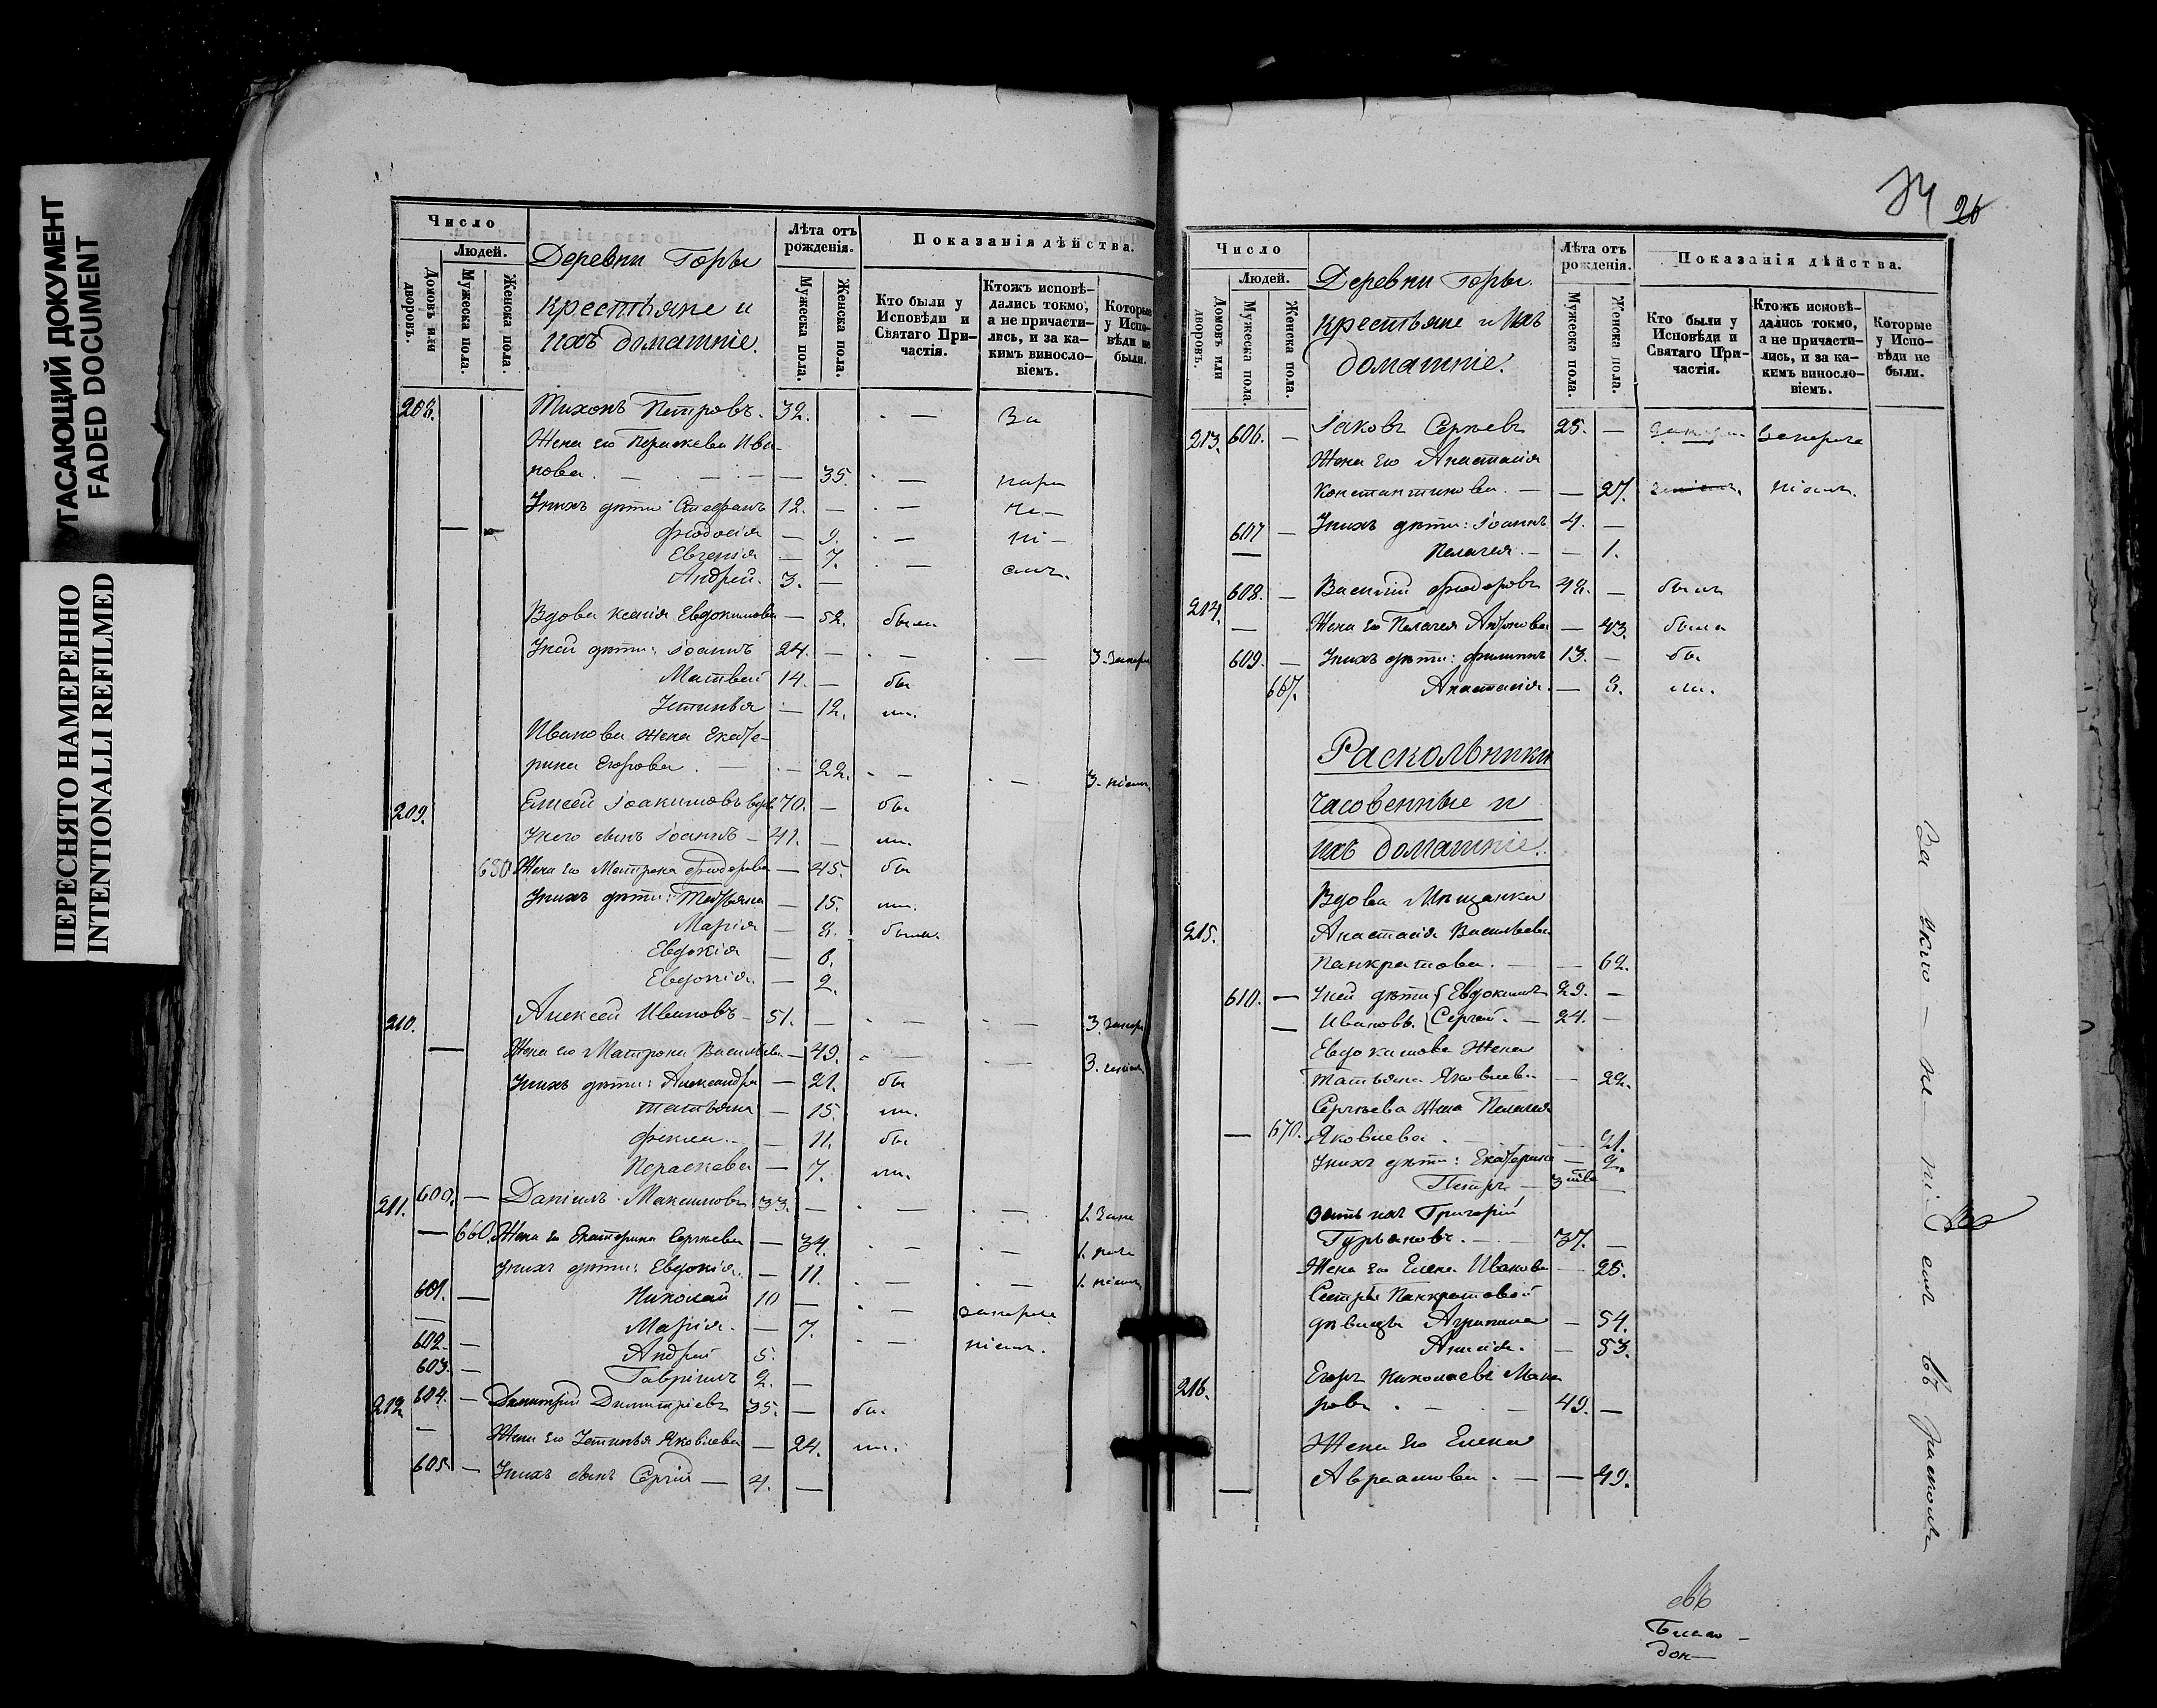 УГАСАЮЩИЙ ДОКУМЕНТ
FADED DOCUMENT
ПЕРЕСНЯТО НАМЕРЕННО
INTENTIONALLI REFILMED
Число
Людей.
Домовъ или дворовъ.
Мужеска пола.
Женска пола.
Деревни Горы
крестьяне и
ихъ домашніе.
Лѣта отъ рожденія.
Мужеска пола.
Женска пола.
Показанія дѣйства.
Кто были у Исповѣди и Святаго Причастія.
Ктожъ исповѣдались токмо, а не причастились, и за какимъ винословіемъ.
Которые у Исповѣди не были.
208. Тихонъ Петровъ. 32. — За
Жена его Параскева Ива-
нова. — 35. — нера
У нихъ дѣти: Стефанъ 12. — —
Ѳеодосія — 9. — ні —
Евгенія — 7. —
Андрей. 3. — емъ.
Вдова Ксенія Евдокимова — 52. были
У ней дѣти: Іоаннъ 24. — — —
Матвей 14. — бы
Устинья — 12. ли.
Иванова жена Екате-
рина Егорова. — 22. — —
209. Елисей Іоакимовъ вдов 70. — бы
У него сынъ Іоаннъ — 41. — ли.
650 Жена его Матрона Ѳеодорова — 45. бы
У нихъ дѣти: Татьяна — 15. ли.
Марія — 8. была
Евдокія — 6.
Евдокія — 2.
210. Алексей Ивановъ — 51. — — —
Жена его Матрона Васильева — 49. — —
У нихъ дѣти: Александра — 21. бы
Татьяна — 15. ли.
Ѳекла. — 11. бы
Параскева — 7. ли.
211. 600. — Даніилъ Максимовъ 33. — — —
— 660. Жена его Екатерина Сергѣева — 34. — —
У нихъ дѣти: Евдокія. — 11. — —
601. — Николай 10 — — занера
Марія. — 7. — ніемъ.
602. — Андрей 5.
603. — Гавріилъ 2. —
212. 604. — Димитрій Димитріевъ 35. — бы
— Жена его Устинья Яковлева — 24. ли.
605. — У нихъ сынъ Сергій — 4. —
26
Число
Людей.
Домовъ или дворовъ.
Мужеска пола.
Женска пола.
Деревни Горы
крестьяне и ихъ
домашніе.
Лѣта отъ рожденія.
Мужеска пола.
Женска пола.
Показанія дѣйства.
Кто были у Исповѣди и Святаго Причастія.
Ктожъ исповѣдались токмо, а не причастились, и за какимъ винословіемъ.
Которые у Исповѣди не были.
213. 606. — Іаковъ Сергѣевъ 25. —
Жена его Анастасія
Константинова. — — 27. ніемъ.
607 — У нихъ дѣти: Іоаннъ 4. —
— Пелагея. — — 1.
214. 608. — Василій Ѳеодоровъ 48. — былъ
— Жена его Пелагея — 43. была
609. — У нихъ дѣти: Филиппъ 13. — бы
667. Анастасія. — 8. ли.
Раскольники
часовенные и
ихъ домашніе.
Вдова Мѣщанка
215. Анастасія Васильева
Панкратова. — — 62.
610. — У ней дѣти { Евдокимъ 29. —
— Ивановъ. { Сергей. — 24. —
Евдокимова Жена
Татьяна Яковлева — 22.
Сергѣева Жена Пелагея
— 670. Яковлева. — 21.
У нихъ дѣти: Екатерина — 2.
Петръ —
Зять ихъ Григорій
Гурьяновъ. — 37. —
Жена его Елена Иванова — 25.
Сестры Панкратовой
дѣвицы Агрипина — 54.
— 53.
216. Егоръ Николаевъ Мака
ровъ. — — 49. —
Жена его Елена
— Авраамова. — — 49.
За укло — не — ні емъ въ расколъ